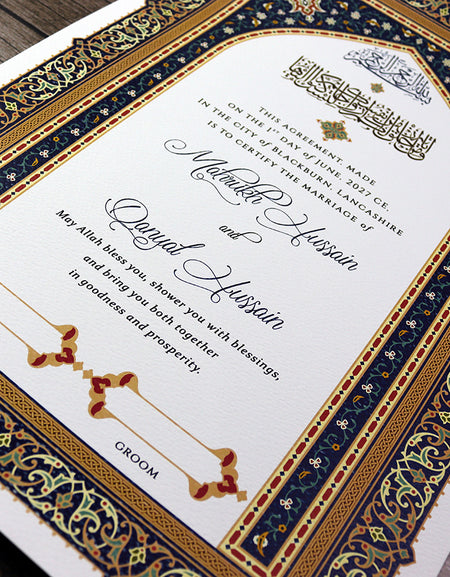 بسم الله الرحمن الرحيم
THIS AGREEMENT, MADE
ON THE 1ST DAY OF JUNE, 2027 CE,
IN THE CITY OF BLACKBURN, LANCASHIRE
IS TO CERTIFY THE MARRIAGE of
Hussain
and
Qanyal Hussain
May Allah bless you, shower you with blessings,
and bring you both together
in goodness and prosperity.
GROOM